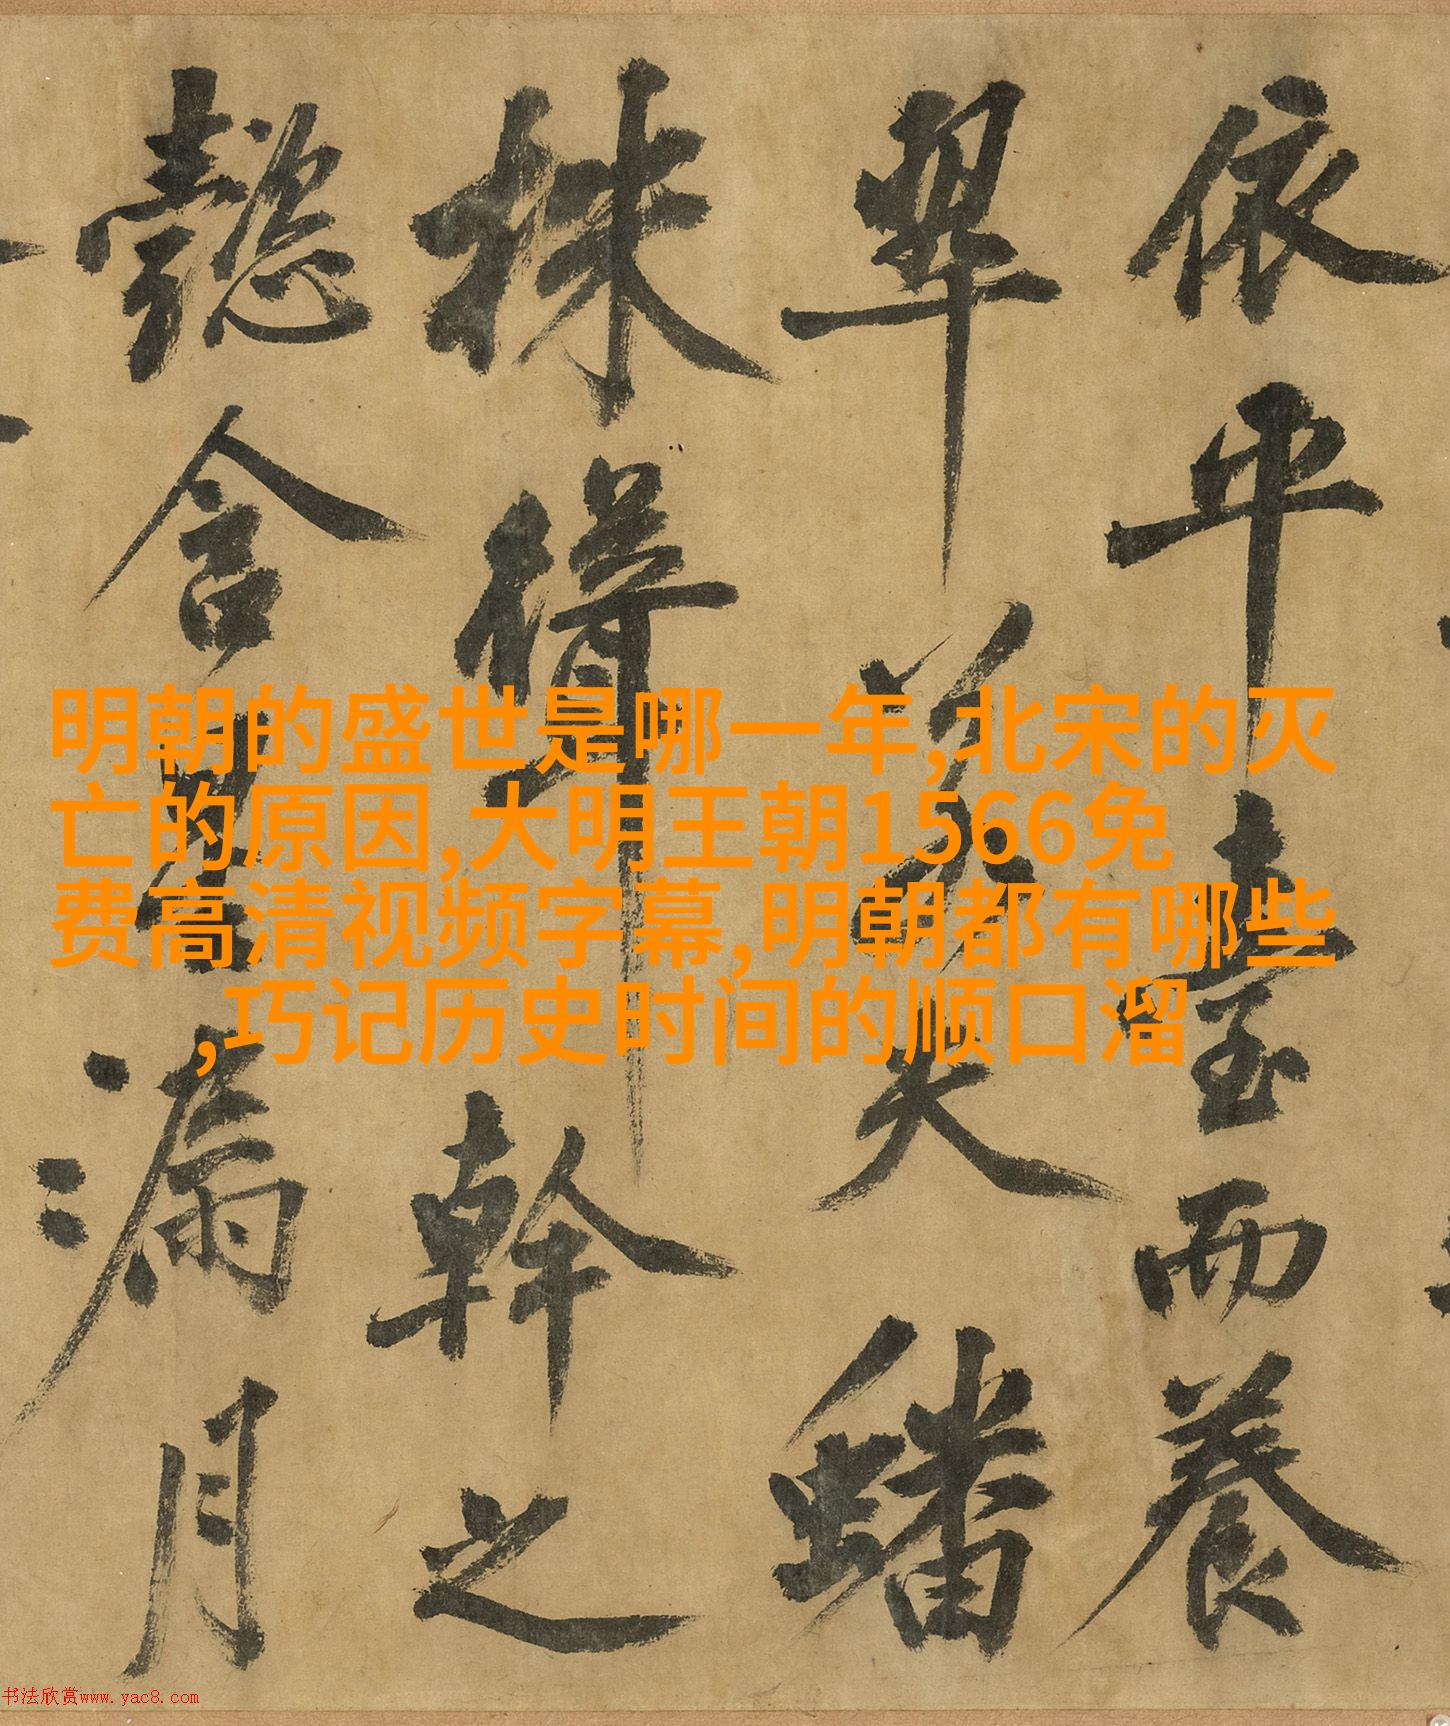 依平臺而養
翠若夫蟠
株聳幹之
懿含星漏月
明朝的盛世是哪一年,北宋的灭
亡的原因,大明王朝1566免
费高清视频字幕,明朝都有哪些
,巧记历史时间的顺口溜
书法欣赏www.yac8.com